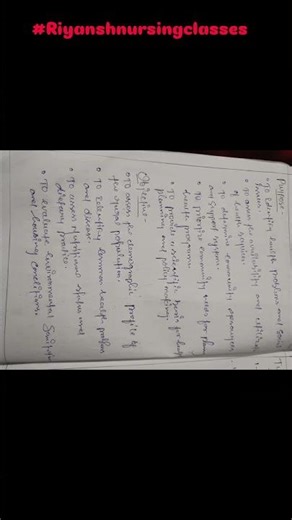 #Riyanshnursingclasses
Purpose
• To identify health problems and
• To assess the availability and
of health services.
• To determine community
and support system.
• To prioritize community needs for
health programs.
• To provide a scientific basis for
planning and policy making.
Objective-
• To assess the demographic profile of
the population.
• To identify common health problem
and disease.
• To assess nutritional status and
dietary practice.
• To evaluate environmental
and housing conditions.